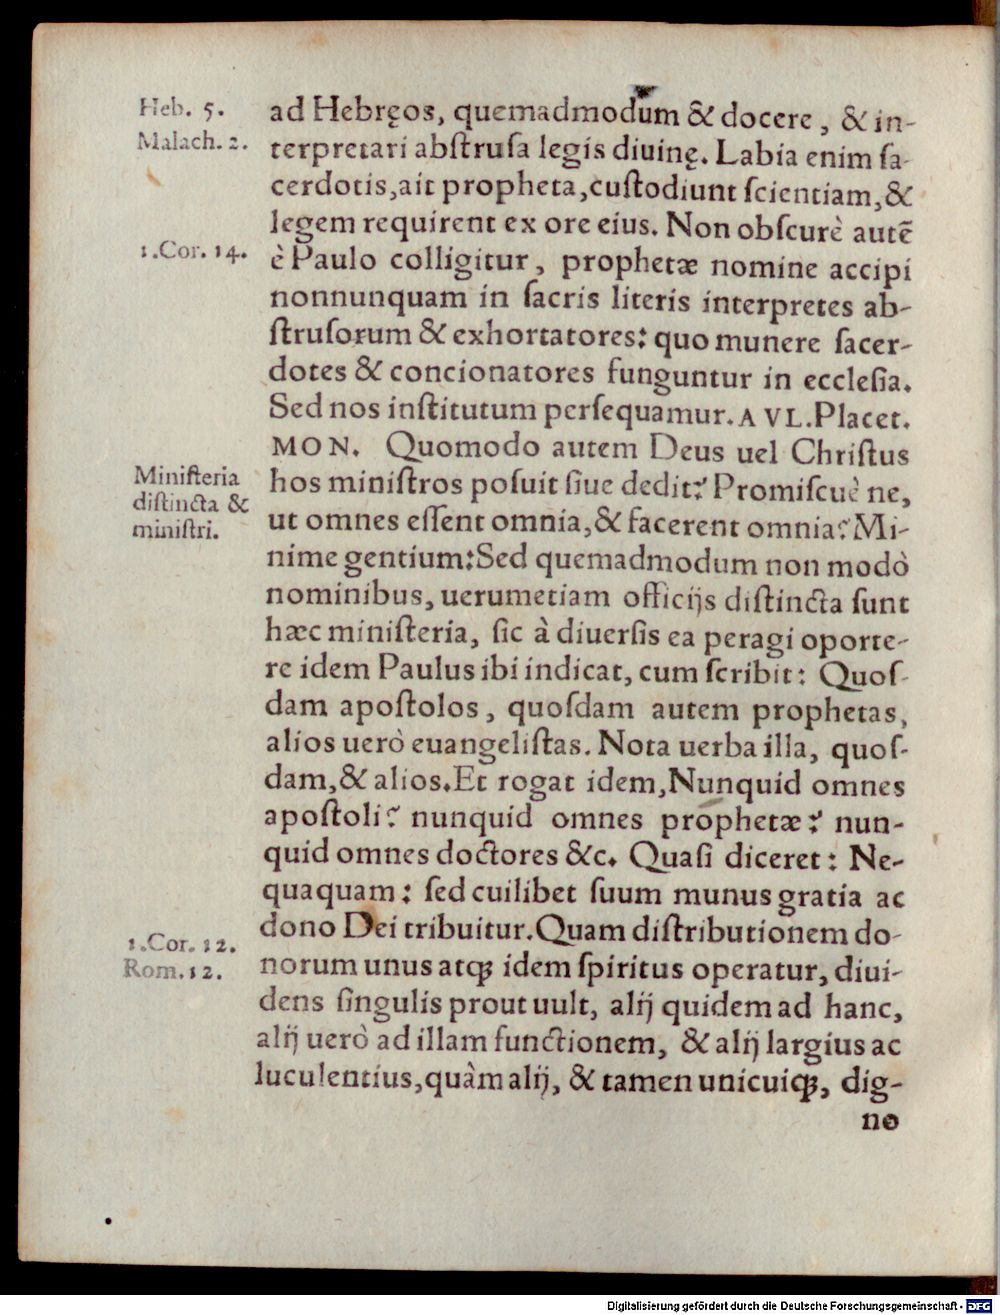 Heb. 5.
Malach. 2.
1.Cor. 14.
ad Hebręos, quemadmodum & docere, & in-
terpretari abſtruſa legis diuinę. Labia enim ſa-
cerdotis, ait propheta, cuſtodiunt ſcientiam, &
legem requirent ex ore eius. Non obſcurè autē
è Paulo colligitur, prophetæ nomine accipi
nonnunquam in ſacris literis interpretes ab-
ſtruſorum & exhortatores: quo munere ſacer-
dotes & concionatores funguntur in eccleſia.
Sed nos inſtitutum perſequamur. AVL. Placet.
MON. Quomodo autem Deus uel Chriſtus
Miniſteria
diſtincta &
miniſtri.
hos miniſtros poſuit ſiue dedit? Promiſcuè ne,
ut omnes eſſent omnia, & facerent omnia? Mi-
nime gentium: Sed quemadmodum non modò
nominibus, uerumetiam officijs diſtincta ſunt
hæc miniſteria, ſic à diuerſis ea peragi oporte-
re idem Paulus ibi indicat, cum ſcribit: Quoſ-
dam apoſtolos, quoſdam autem prophetas,
alios uerò euangeliſtas. Nota uerba illa, quoſ-
dam, & alios. Et rogat idem, Nunquid omnes
apoſtoli? nunquid omnes prophetæ? nun-
quid omnes doctores &c. Quaſi diceret: Ne-
quaquam: ſed cuilibet ſuum munus gratia ac
1.Cor. 12.
Rom. 12.
dono Dei tribuitur. Quam diſtributionem do-
norum unus atq; idem ſpiritus operatur, diui-
dens ſingulis prout uult, alij quidem ad hanc,
alij uerò ad illam functionem, & alij largius ac
luculentius, quàm alij, & tamen unicuiq;, dig-
no
Digitalisierung gefördert durch die Deutsche Forschungsgemeinschaft - DFG